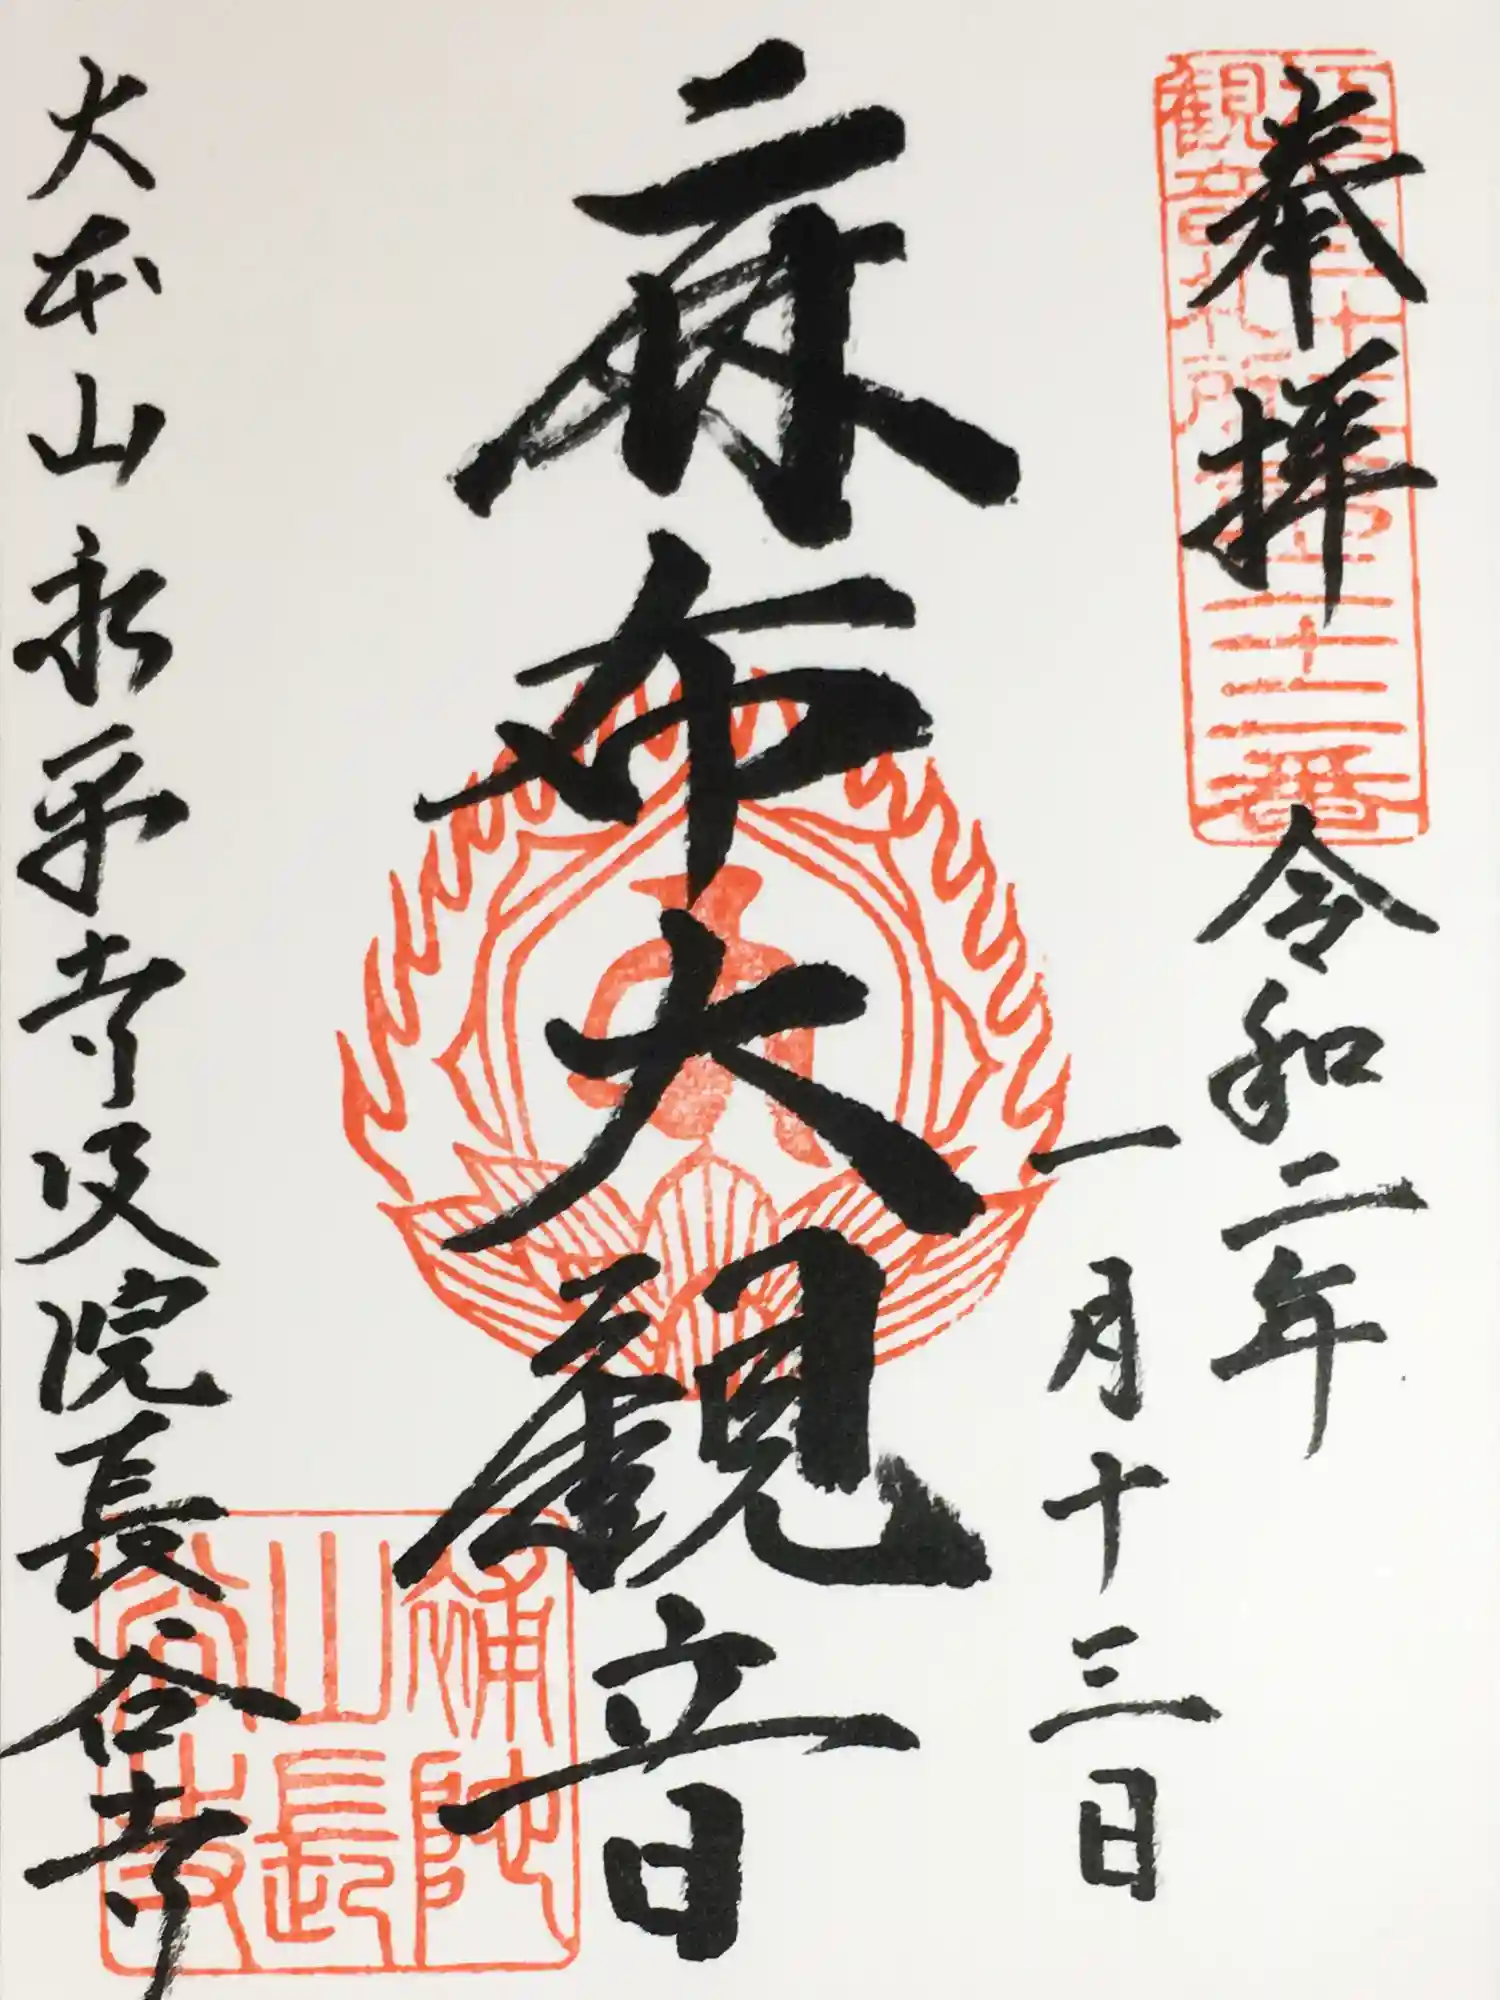 奉拝
江戸三十三
観音札所
第二十二番
令和二年
一月十三日
麻布大観音
大本山永平寺別院長谷寺
補陀
山長
谷寺